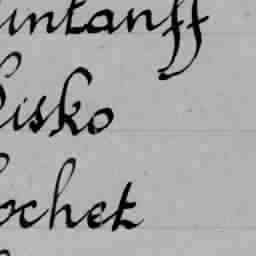 untanff
isko
ochet